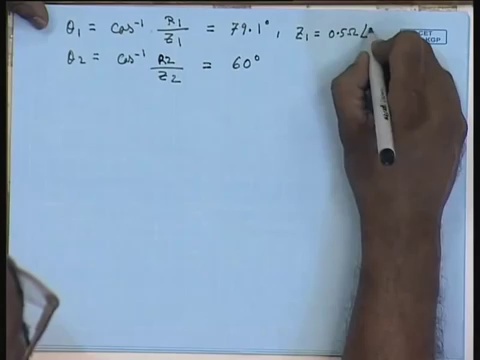 θ1 = cos⁻¹ R1/Z1 = 79.1°, Z1 = 0.5Ω∠
θ2 = cos⁻¹ R2/Z2 = 60°
KGP